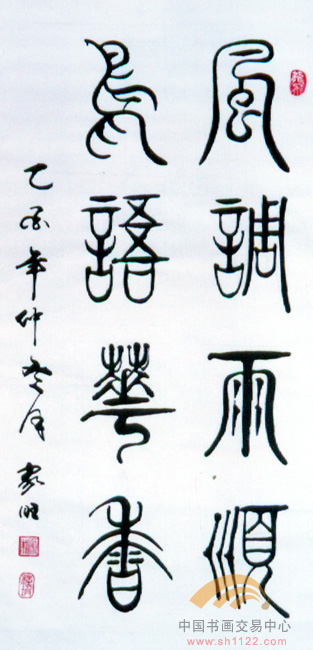 風調雨順
鳥語華香
乙酉年仲冬月
中国书画交易中心
www.sh1122.com